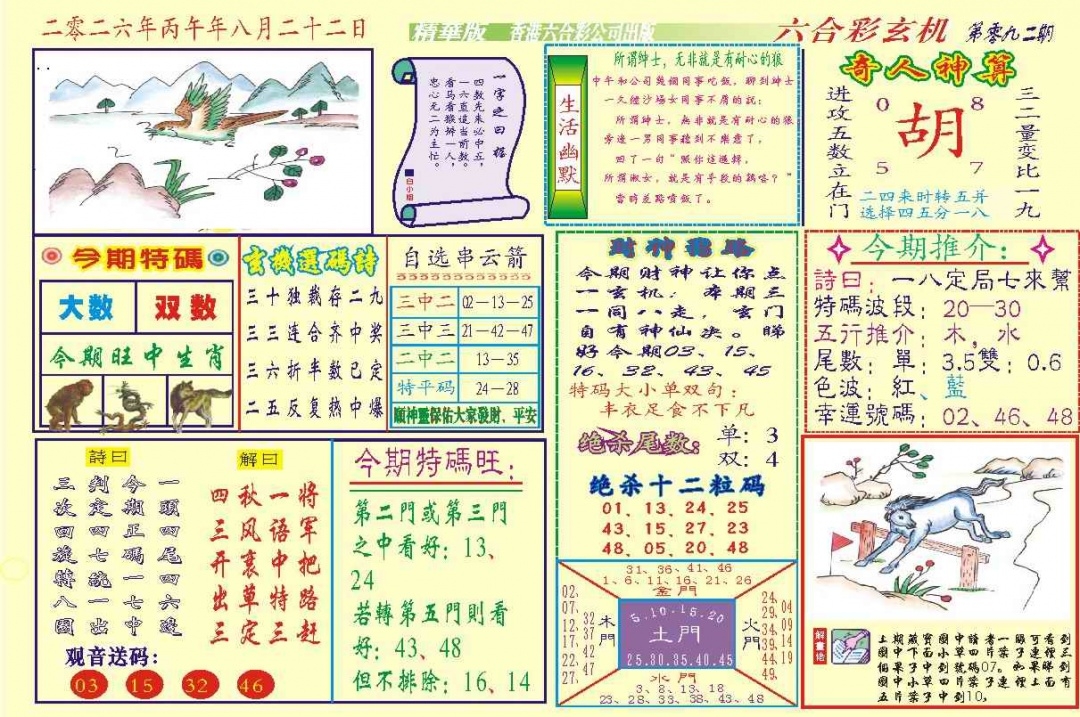 二零二六年丙午年八月二十二日
精華版 香港六合彩公司出版
六合彩玄机 第零九二期
一字之曰猛
四数先来必中五，
一六直追当前数。
看马看猴蝉一人，
忠心无二为主忙。
白小姐
生活幽默
所谓紳士，无非就是有耐心的狼
中午和公司幾個同事吃飯，聊到紳士
一久經沙場女同事不屑的說：
所謂紳士，無非就是有耐心的狼
旁邊一男同事聽到不樂意了，
回了一句"照你這邏輯，
所謂淑女，就是有手段的鷄咯？"
當時差點噴飯了。
奇人神算
进攻五数立在门
0 8
胡
5 7
三二量变比一九
二四来时转五并
选择四五分一八
今期特碼
大数 双数
今期旺中生肖
玄機選碼詩
三十独裁存二九
三三连合齐中奖
三六折半数已定
二五反复热中爆
自选串云箭
三中二 02—13—25
三中三 21—42—47
二中二 13—35
特平码 24—28
願神靈保佑大家發財、平安
财神密路
今期财神让你点
一玄机：本期三
一同八走，玄门
自有神仙决。睇
好今期03、15、
16、32、43、45
特码大小单双句：
丰衣足食不下凡
绝杀尾数：
单：3
双：4
绝杀十二粒码
01、13、24、25
43、15、27、23
48、05、20、48
今期推介：
詩曰：一八定局七來幫
特碼波段：20—30
五行推介：木，水
尾數：單：3.5雙：0.6
色波：紅、藍
幸運號碼：02、46、48
詩曰
一頭四尾四六邊
今期正碼一七中
判定四七統一出
三次回旋特八圍
解曰
将军把路赶
一语中特三
秋风裹草定
四三开出三
观音送码：
03 15 32 46
今期特碼旺：
第二門或第三門
之中看好：13、
24
若轉第五門則看
好：43、48
但不排除：16、14
31、36、41、46
1、6、11、16、21、26
金門
02、07、12、17、22、27、
32 37 42 47
木門
5.10.15.20
土門
25.30.35.40.45
火門
24、29、34、39、44、49、
04 09 14 19
水門
3、8、13、18
23、28、33、38、43、48
解畫佬
上期藏寶圖中讀者一眼可看到
圖中下面小草四片葉子連徑三
個果子中到號碼07。如果睇到
圖中小草四片葉子連徑上面有
五片葉子中到10，